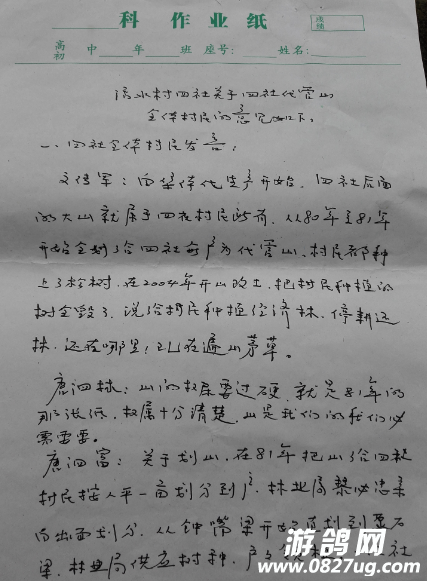 科作业纸
高 初 中 年 班 座号: 姓名:
成绩
清水村四社关于四社代管山
全体村民的意见如下:
一、四社全体村民发言:
文传军:向集体化生产开始,四社后面
的大山就属于四社村民所有,从80年至81年
开始全划给四社每户为代管山,村民都种
上了松树,在2004年开山改土,把村民种植的
树全毁了,说给村民种植经济林,停耕还
林,还在哪里,现在遍山茅草。
唐泗林:山的权属要过硬,就是81年的
那张纸,权属十分清楚,山是我们的我们必
需要要。
唐泗富:关于划山,在81年把山给四社
村民按人平一亩划分到户,林业局黎必忠亲
自出面划分,从钟嘴梁开始直划到
梁,林业局供应树种,户
社
游鸽网
www.0827ug.com